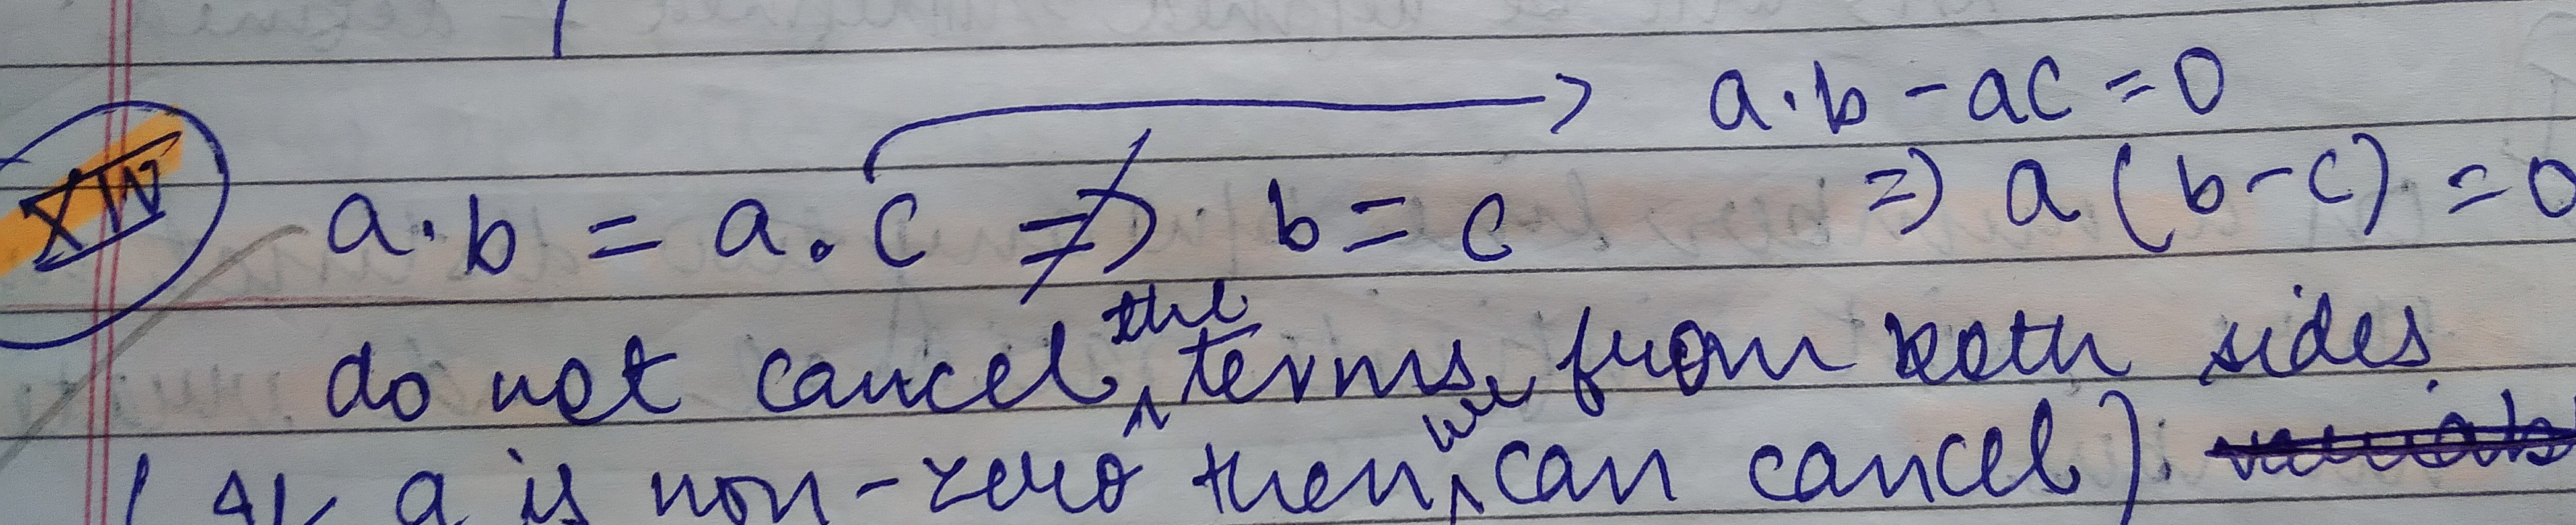 a·b - ac = 0
XIV a·b = a.c ⇏ b = c ⇒ a(b-c) = 0
do not cancel the terms from both sides.
(If a is non-zero then we can cancel).